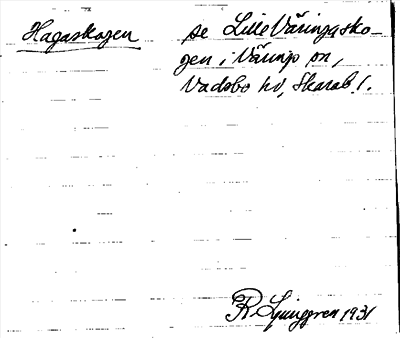 Hagaskogen se Lille Väringasko-
gen i Väring sn,
Vadsbo hd, Skarab. l.
R Ljunggren 1931